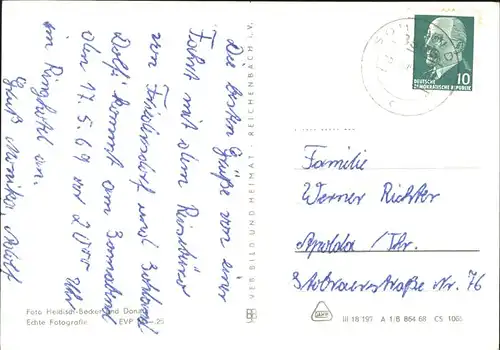 Die besten Grüße von einer
Fahrt mit dem
von Friedersdorf und
Wolfi kommt am Sonnabend
den 17.5.69 vor 20 Uhr
im Ringhotel an.
Gruß Monika, Adolf
Foto Heidisch-Becker und
Echte Fotografie EVP
VEB BILD UND HEIMAT · REICHENBACH i.V.
DEUTSCHE
DEMOKRATISCHE REPUBLIK
10
Familie
Werner Richter
Apolda / Thr.
Straße Nr. 76
III 18 197 A 1/B 864 68 CS 1006